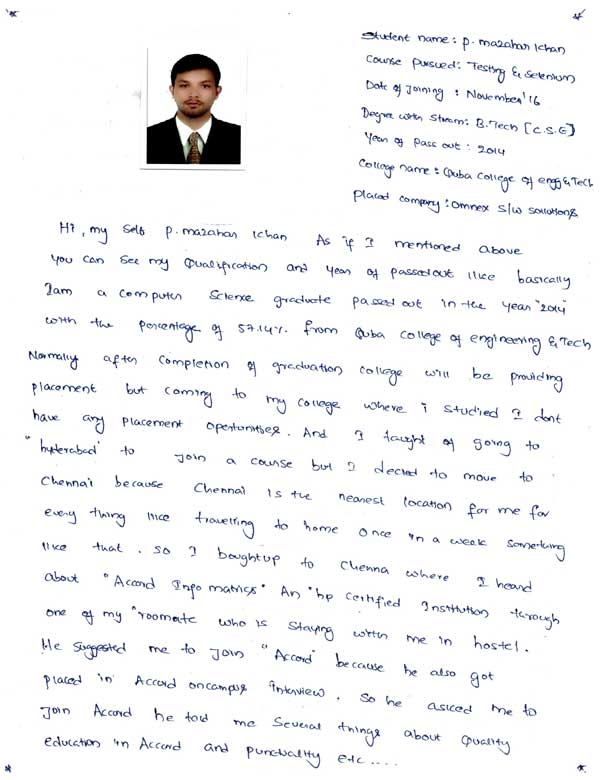 Student name: P. mazahar Khan
Course pursued: Testing & Selenium
Date of Joining : November'16
Degree with Stream: B.Tech [C.S.E]
Year of Pass out : 2014
College name : Quba College of engg & Tech
Placed company : Omnex S/W solutions
Hi, my Self P. mazahar Khan As if I mentioned above
you can see my Qualification and year of passedout like basically
I am a computer Science graduate passed out in the year "2014"
with the percentage of 57.14%. from Quba college of engineering & Tech
Normally after completion of graduation college will be providing
placement but coming to my college where i studied I dont
have any placement opertunities. And I taught of going to
"hyderabad" to join a course but I decied to move to
Chennai because Chennai is the nearest location for me for
every thing like travelling to home once in a week something
like that. So I boughtup to Chenna where I heard
about "Accord Info matrics" An "hp certified Institution through
one of my "roomate who is staying with me in hostel.
He suggested me to Join "Accord" because he also got
placed in Accord oncampus interview. So he asked me to
Join Accord he told me Several things about Quality
education in Accord and punctuality etc....